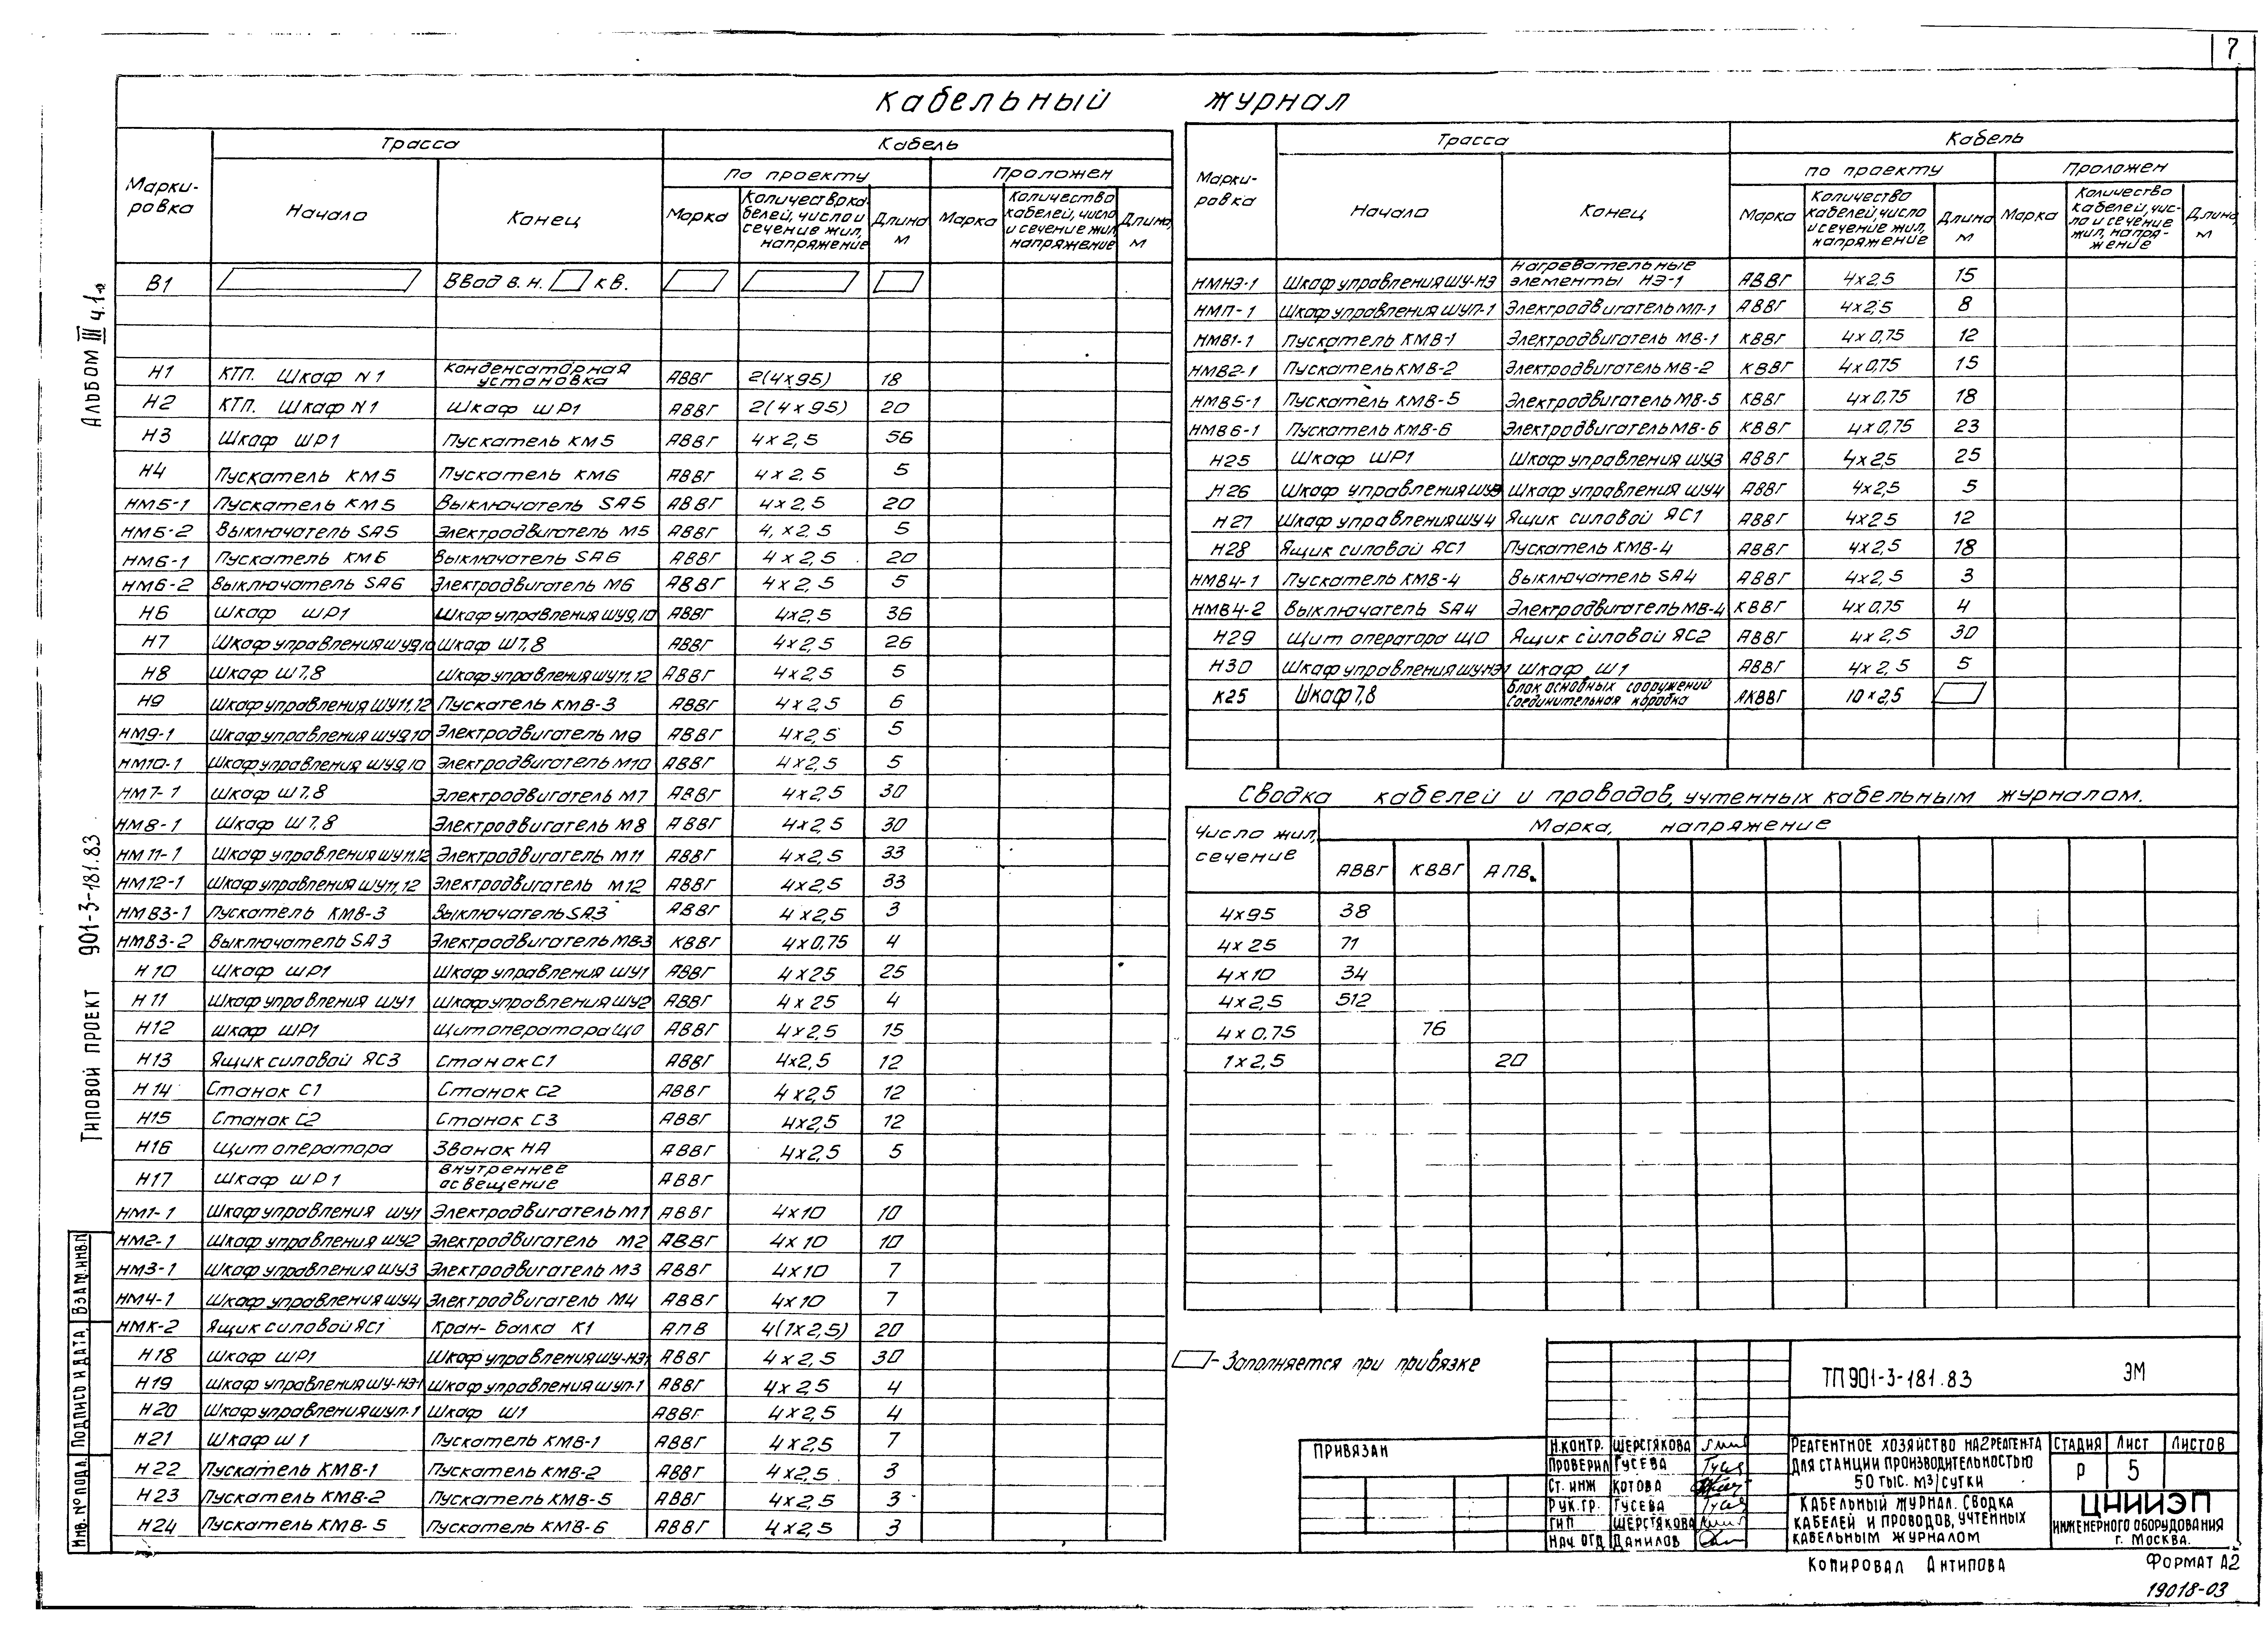 7
Кабельный журнал
Марки-
ровка
Трасса
Кабель
Начало
Конец
по проекту
Проложен
Марка
Количество ка-
белей, число и
сечение жил,
напряжение
Длина
м
Марка
Количество
кабелей, число
и сечение жил,
напряжение
Длина,
м
В1 Ввод в.н. кв.
Н1 КТП. Шкаф N1 Конденсаторная установка АВВГ 2(4×95) 18
Н2 КТП. Шкаф N1 Шкаф ШР1 АВВГ 2(4×95) 20
Н3 Шкаф ШР1 Пускатель КМ5 АВВГ 4×2,5 56
Н4 Пускатель КМ5 Пускатель КМ6 АВВГ 4×2,5 5
НМ5-1 Пускатель КМ5 Выключатель SA5 АВВГ 4×2,5 20
НМ5-2 Выключатель SA5 Электродвигатель М5 АВВГ 4×2,5 5
НМ6-1 Пускатель КМ6 Выключатель SA6 АВВГ 4×2,5 20
НМ6-2 Выключатель SA6 Электродвигатель М6 АВВГ 4×2,5 5
Н6 Шкаф ШР1 Шкаф управления ШУ9,10 АВВГ 4×2,5 36
Н7 Шкаф управления ШУ9,10 Шкаф Ш7,8 АВВГ 4×2,5 26
Н8 Шкаф Ш7,8 Шкаф управления ШУ11,12 АВВГ 4×2,5 5
Н9 Шкаф управления ШУ11,12 Пускатель КМВ-3 АВВГ 4×2,5 6
НМ9-1 Шкаф управления ШУ9,10 Электродвигатель М9 АВВГ 4×2,5 5
НМ10-1 Шкаф управления ШУ9,10 Электродвигатель М10 АВВГ 4×2,5 5
НМ7-1 Шкаф Ш7,8 Электродвигатель М7 АВВГ 4×2,5 30
НМ8-1 Шкаф Ш7,8 Электродвигатель М8 АВВГ 4×2,5 30
НМ11-1 Шкаф управления ШУ11,12 Электродвигатель М11 АВВГ 4×2,5 33
НМ12-1 Шкаф управления ШУ11,12 Электродвигатель М12 АВВГ 4×2,5 33
НМВ3-1 Пускатель КМВ-3 Выключатель SA3 АВВГ 4×2,5 3
НМВ3-2 Выключатель SA3 Электродвигатель МВ-3 КВВГ 4×0,75 4
Н10 Шкаф ШР1 Шкаф управления ШУ1 АВВГ 4×25 25
Н11 Шкаф управления ШУ1 Шкаф управления ШУ2 АВВГ 4×25 4
Н12 Шкаф ШР1 Щит оператора ЩО АВВГ 4×2,5 15
Н13 Ящик силовой ЯС3 Станок С1 АВВГ 4×2,5 12
Н14 Станок С1 Станок С2 АВВГ 4×2,5 12
Н15 Станок С2 Станок С3 АВВГ 4×2,5 12
Н16 Щит оператора Звонок НА АВВГ 4×2,5 5
Н17 Шкаф ШР1 Внутреннее освещение АВВГ
НМ1-1 Шкаф управления ШУ1 Электродвигатель М1 АВВГ 4×10 10
НМ2-1 Шкаф управления ШУ2 Электродвигатель М2 АВВГ 4×10 10
НМ3-1 Шкаф управления ШУ3 Электродвигатель М3 АВВГ 4×10 7
НМ4-1 Шкаф управления ШУ4 Электродвигатель М4 АВВГ 4×10 7
НМК-2 Ящик силовой ЯС1 Кран-балка К1 АПВ 4(1×2,5) 20
Н18 Шкаф ШР1 Шкаф управления ШУ-НЭ1 АВВГ 4×2,5 30
Н19 Шкаф управления ШУ-НЭ-1 Шкаф управления ШУП-1 АВВГ 4×2,5 4
Н20 Шкаф управления ШУП-1 Шкаф Ш1 АВВГ 4×2,5 4
Н21 Шкаф Ш1 Пускатель КМВ-1 АВВГ 4×2,5 7
Н22 Пускатель КМВ-1 Пускатель КМВ-2 АВВГ 4×2,5 3
Н23 Пускатель КМВ-2 Пускатель КМВ-5 АВВГ 4×2,5 3
Н24 Пускатель КМВ-5 Пускатель КМВ-6 АВВГ 4×2,5 3
Марки-
ровка
Трасса
Кабель
Начало
Конец
по проекту
Проложен
Марка
Количество
кабелей, число
и сечение жил,
напряжение
Длина
м
Марка
Количество
кабелей, чис-
ло и сечение
жил, напря-
жение
Длина,
м
НМНЭ-1 Шкаф управления ШУ-НЭ Нагревательные элементы НЭ-1 АВВГ 4×2,5 15
НМП-1 Шкаф управления ШУП-1 Электродвигатель МП-1 АВВГ 4×2,5 8
НМВ1-1 Пускатель КМВ-1 Электродвигатель МВ-1 КВВГ 4×0,75 12
НМВ2-1 Пускатель КМВ-2 Электродвигатель МВ-2 КВВГ 4×0,75 15
НМВ5-1 Пускатель КМВ-5 Электродвигатель МВ-5 КВВГ 4×0,75 18
НМВ6-1 Пускатель КМВ-6 Электродвигатель МВ-6 КВВГ 4×0,75 23
Н25 Шкаф ШР1 Шкаф управления ШУ3 АВВГ 4×25 25
Н26 Шкаф управления ШУ3 Шкаф управления ШУ4 АВВГ 4×2,5 5
Н27 Шкаф управления ШУ4 Ящик силовой ЯС1 АВВГ 4×25 12
Н28 Ящик силовой ЯС1 Пускатель КМВ-4 АВВГ 4×2,5 18
НМВ4-1 Пускатель КМВ-4 Выключатель SA4 АВВГ 4×2,5 3
НМВ4-2 Выключатель SA4 Электродвигатель МВ-4 КВВГ 4×0,75 4
Н29 Щит оператора ЩО Ящик силовой ЯС2 АВВГ 4×2,5 30
Н30 Шкаф управления ШУНЭ1 Шкаф Ш1 АВВГ 4×2,5 5
К25 Шкаф 7,8 Блок основных сооружений Соединительная коробка АКВВГ 10×2,5
Сводка кабелей и проводов, учтенных кабельным журналом.
Число жил,
сечение
Марка, напряжение
АВВГ КВВГ АПВ
4×95 38
4×25 71
4×10 34
4×2,5 512
4×0,75 76
1×2,5 20
- Заполняется при привязке
Привязан
ТП 901-3-181.83 ЭМ
Н.контр. Шерстякова
Проверил Гусева
Ст. инж Котова
Рук.гр. Гусева
ГИП Шерстякова
Нач. отд Данилов
Реагентное хозяйство на 2 реагента
для станции производительностью
50 тыс. м3/сутки
Стадия Лист Листов
Р 5
Кабельный журнал. Сводка
кабелей и проводов, учтенных
кабельным журналом
ЦНИИЭП
инженерного оборудования
г. Москва.
Копировал Антипова
Формат А2
19018-03
Альбом III ч.1
Типовой проект 901-3-181.83
Взам. инв.N
Подпись и дата
Инв. № подл.